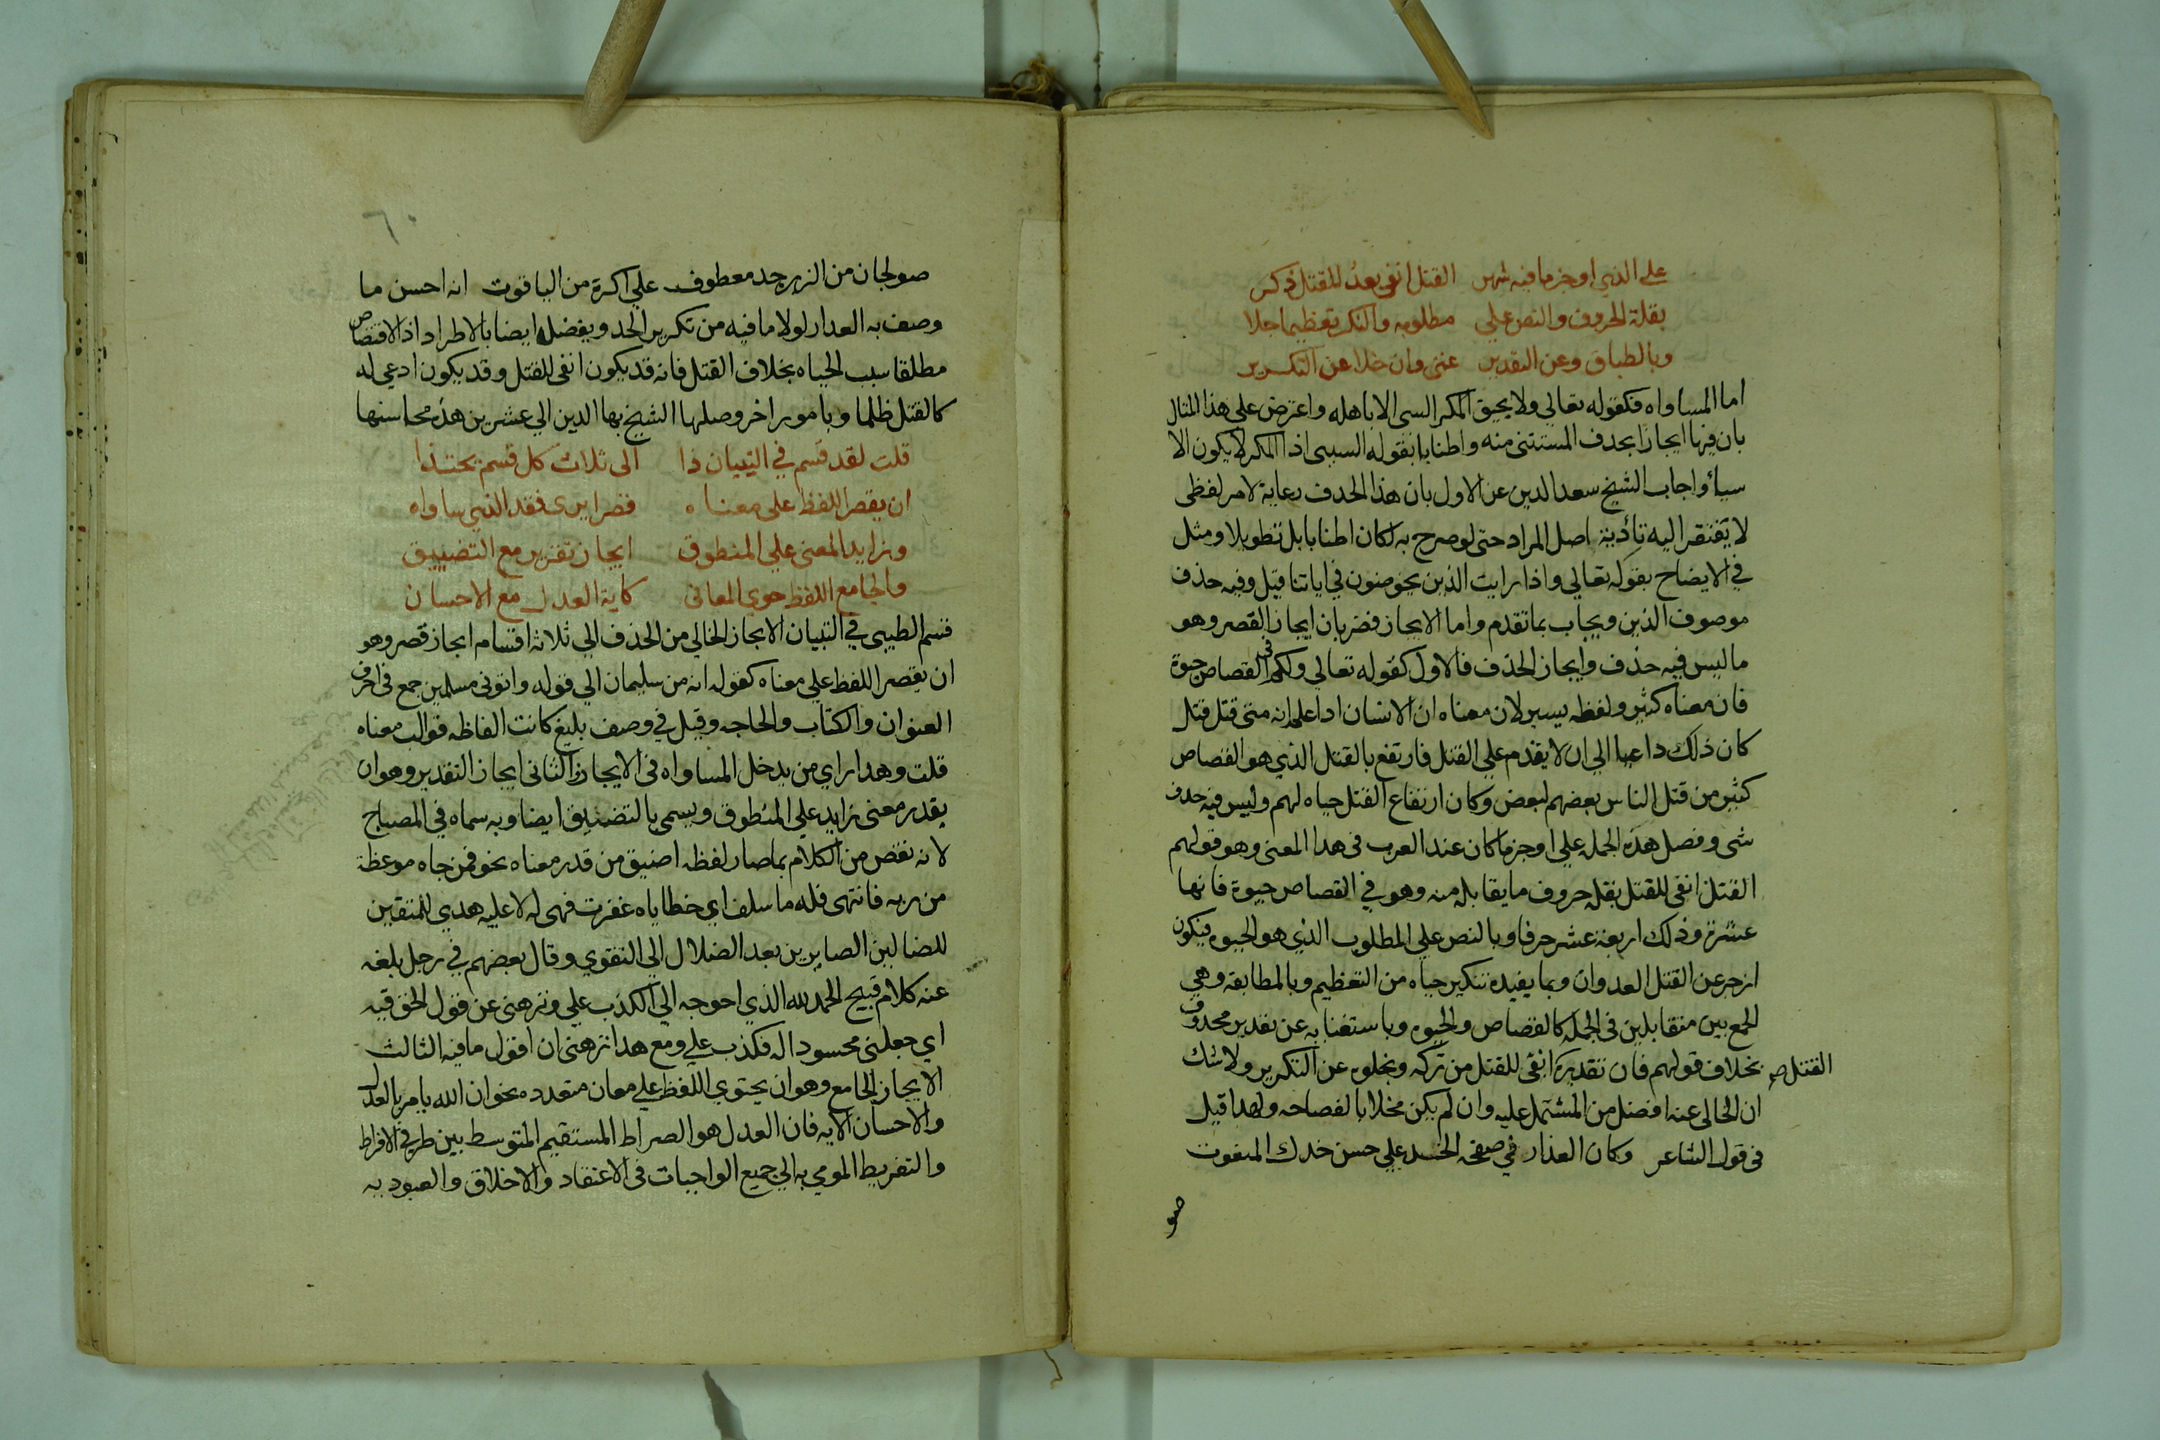 على الذي اوجز ما فيه شهر القتل انفى بعد للقتل ذكر
بقلة الحروف والنص على مطلوبه والنكر تعظيما جلا
وبالطباق وعن التقدير غنى وان خلا عن التكرير
اما المساواه فكقوله تعالى ولا يحيق المكر السى الا باهله واعترض على هذا المثال
بان فيها ايجازا بحذف المستثنى منه واطنابا بقوله السيى اذ المكر لا يكون الا
سيأ واجاب الشيخ سعد الدين عن الاول بان هذا الحذف رعاية لامر لفظى
لا يفتقر اليه تأدية اصل المراد حتى لو صرح به لكان اطنابا بل تطويلا ومثل
في الايضاح بقوله تعالى واذا رايت الذين يخوضون في اياتنا قيل وفيه حذف
موصوف الذين ويجاب بما تقدم واما الايجاز فضربان ايجاز القصر وهو
ما ليس فيه حذف وايجاز الحذف فالاول كقوله تعالى ولكم في القصاص حيوة
فان معناه كثير ولفظه يسير لان معناه ان الانسان اذا علم انه متى قتل قتل
كان ذلك داعيا الى ان لا يقدم على القتل فارتفع بالقتل الذي هو القصاص
كثير من قتل الناس بعضهم لبعض وكان ارتفاع القتل حياه لهم وليس فيه حذف
شى وفصل هذه الجمله على اوجز ما كان عند العرب فى هذا المعنى وهو قولهم
القتل انفى للقتل بقله حروف ما يقابله منه وهو في القصاص حيوة فانها
عشرة وذلك اربعة عشر حرفا وبالنص على المطلوب الذي هو الحيوه فيكون
ازجر عن القتل العدوان وبما يفيده تنكير حياه من التعظيم وبالمطابقه وهي
الجمع بين متقابلين فى الجمله كالقصاص والحيوه وباستغنايه عن تقدير محذوف
بخلاف قولهم فان تقديره انفى للقتل من تركه وبخلوه عن التكرير ولا شك
القتل صح
ان الخالى عنه افضل من المشتمل عليه وان لم يكن مخلا بالفصاحه ولهذا قيل
فى قول الشاعر وكان العذار في صفحه الخد على حسن خدك المنعوت
صو
٦٠
صولجان من الزبرجد معطوف على اكرة من الياقوت انه احسن ما
وصف به العذار لولا ما فيه من تكرير الخد ويفضله ايضا بالاطراد اذ الاقتصاص
مطلقا سبب الحياه بخلاف القتل فانه قد يكون انفى للقتل وقد يكون ادعى له
كالقتل ظلما وبامور اخر وصلها الشيخ بها الدين الى عشرين هذه محاسنها
قلت لقد قسم في التبيان ذا الى ثلاث كل قسم يحتذا
ان يقصر اللفظ على معناه قصرا يرى فقد الذي ساواه
وزايد المعنى على المنطوق ايجاز تقرير مع التضييق
والجامع اللفظ حوى المعانى كاية العدل مع الاحسان
قسم الطيبى في التبيان الايجاز الخالى من الحذف الى ثلاثه اقسام ايجاز قصر وهو
ان يقصر اللفظ على معناه كقوله انه من سليمان الى قوله واتونى مسلمين جمع فى احرف
العنوان والكتاب والحاجه وقيل في وصف بليغ كانت الفاظه قوالب معناه
قلت وهذا راي من يدخل المساواه فى الايجاز والثانى ايجاز التقدير وهو ان
يقدر معنى زايد على المنطوق ويسمى بالتضييق ايضا وبه سماه في المصباح
لانه نقص من الكلام بما صار لفظه اضيق من قدر معناه نحو فمن جاه موعظة
من ربه فانتهى فله ما سلف اي خطاياه غفرت فهى له لا عليه هدي للمتقين
للضالين الصايرين بعد الضلال الى التقوي وقال بعضهم في رجل بلغه
عنه كلام قبيح الحمد لله الذي احوجه الى الكذب على ونزهنى عن قول الحق فيه
اي جعلنى محسودا له فكذب على ومع هذا نزهنى ان اقول ما فيه الثالث
الايجاز الجامع وهو ان يحتوي اللفظ على معان متعدده نحو ان الله يامر بالعدل
والاحسان الايه فان العدل هو الصراط المستقيم المتوسط بين طرفي الافراط
والتفريط المومي به الى جميع الواجبات فى الاعتقاد والاخلاق والعبوديه